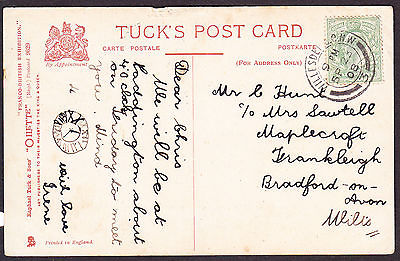 TUCK'S POST CARD
CARTE POSTALE
POSTKARTE
By Appointment
(FOR ADDRESS ONLY.)
Dear Chris
We will be at
Paddington about
4 o'clock
on Tuesday to meet
you
with love
Irene
Mr C Hunt
c/o Mrs Sawtell
Maplecroft
Frankleigh
Bradford-on-
Avon
Wilts
WILLESDEN
N.W.
08
Raphael Tuck & Sons' "OILETTE"
"FRANCO-BRITISH EXHIBITION."
ART PUBLISHERS TO THEIR MAJESTIES THE KING AND QUEEN
Printed in England.